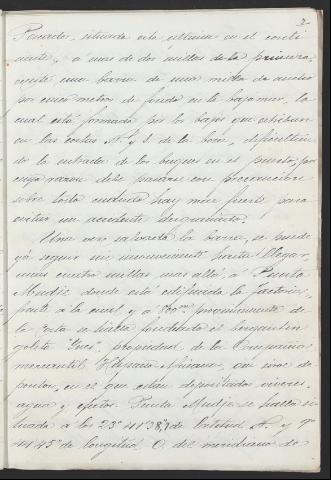 2
Pescador, situada esta última en el conti
nente, y á mas de dos millas de la primera,
existe una barra de una milla de ancho
por cinco metros de fondo en la bajamar, la
cual está formada por los bajos que existen
en las costas N. y S. de la boca, dificultan
do la entrada de los buques en el puerto, por
cuya razon debe pasarse con precaucion
sobre todo cuando hay mar fuerte para
evitar un accidente desgraciado.
Una vez salvada la barra, se puede
ya seguir sin inconveniente hasta llegar
unas cuatro millas mas allá, á Punta
Mudje donde está edificada la Factoria,
frente á la cual y á 800 m proximamente de
la costa se halla fondeado el bergantin
goleta "Ines", propiedad de la Compañia
mercantil Hispano-Africana, que sirve de
ponton, en el que estan depositados viveres,
agua y efectos. Punta Mudje se halla si
tuada á los 23° 41' 38" de latitud N. y
11° 45' de longitud O. del meridiano de